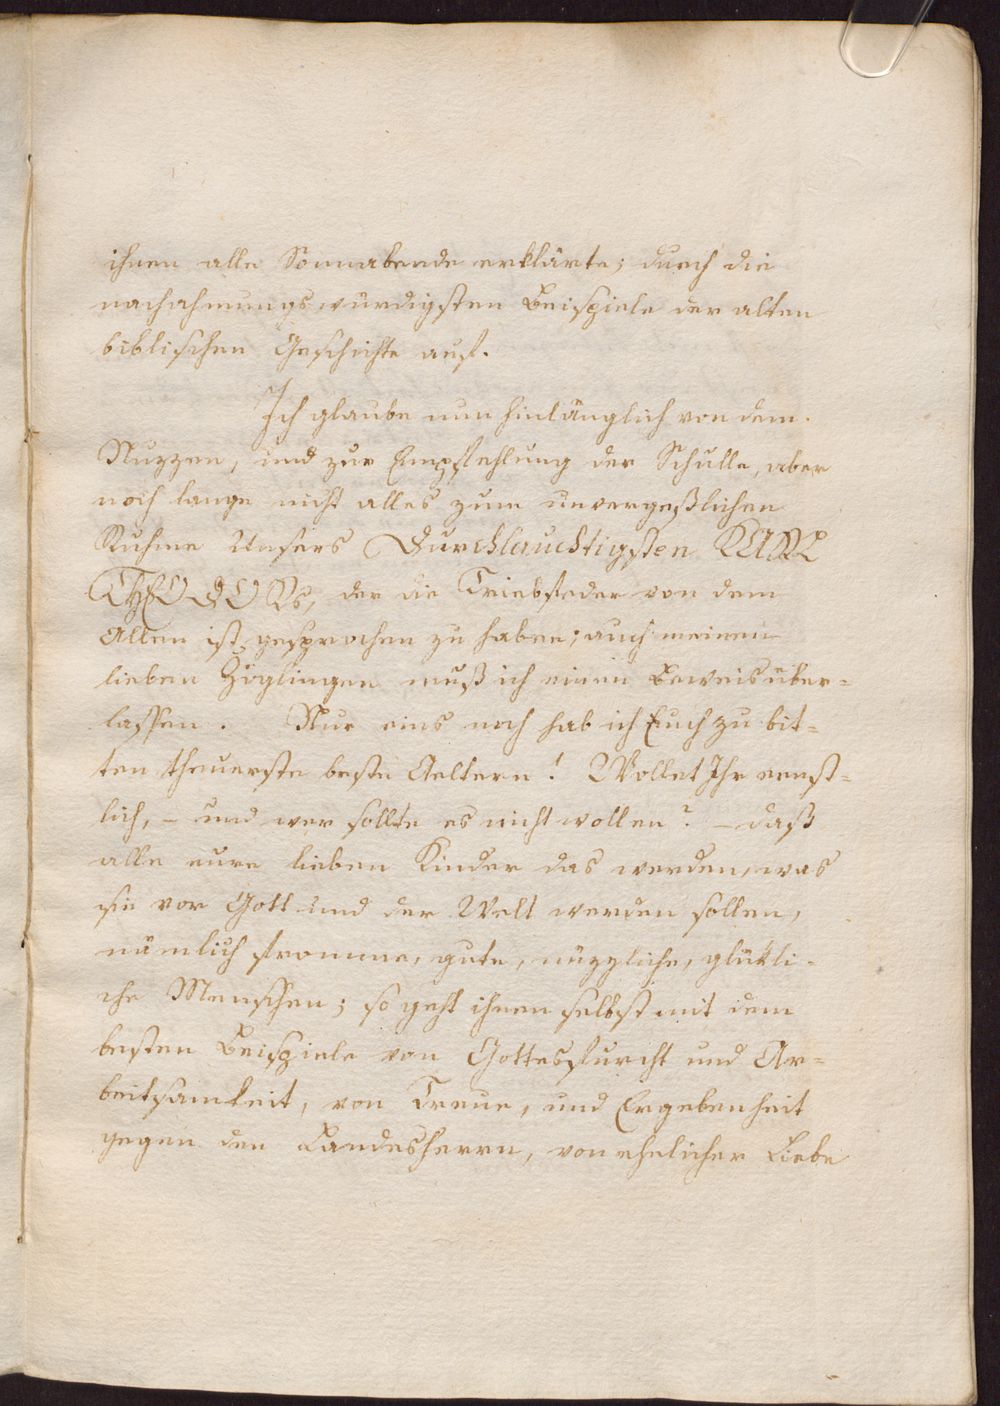 ihnen alle Sonnabende erklärte; durch die
nachahmungswürdigsten Beispiele der alten
biblischen Geschichte aus.
Ich glaube nun hinlänglich von dem
Nuzzen, und zur Empfehlung der Schulle, aber
noch lange nicht alles zum unvergeßlichen
Ruhme Unsers Durchlauchtigsten KARL
THEODORs, der die Triebfeder von dem
Allen ist, gesprochen zu haben; auch meinen
lieben Zöglingen muß ich einen Beweis über-
lassen. Nur eins noch hab ich Euch zu bit-
ten theuerste beste Aeltern! Wollet Ihr ernst-
lich, – und wer sollte es nicht wollen? – daß
alle eure lieben Kinder das werden, was
sie vor Gott und der Welt werden sollen,
nämlich fromme, gute, nüzzliche, glükli-
che Menschen; so geht ihnen selbst mit dem
besten Beispiele von Gottesfurcht und Ar-
beitsamkeit, von Treue, und Ergebenheit
gegen den Landesherrn, von ehelicher Liebe